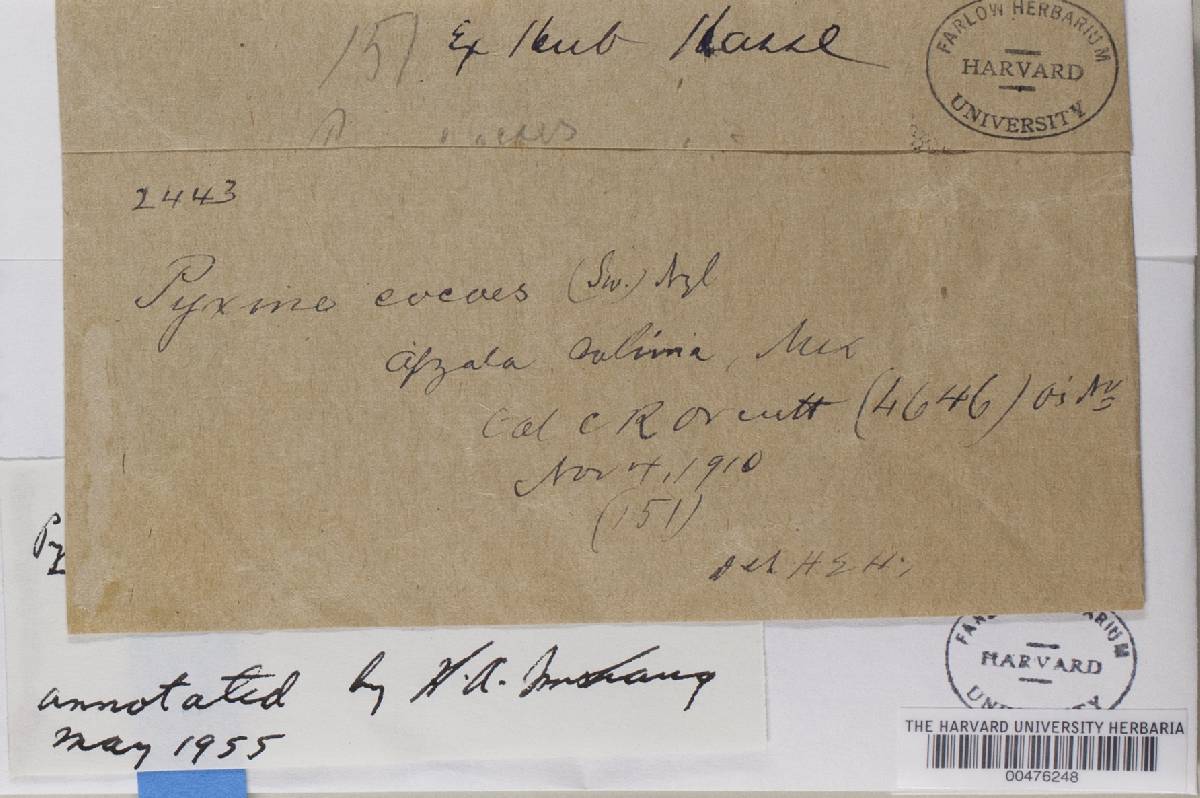 151 Ex Herb Hasse
FARLOW HERBARIUM
HARVARD
UNIVERSITY
2443
Pyxine cocoes (Sw.) Nyl
Colima, Mex
Col C R Orcutt (4646)
Nov 4, 1910
(151)
Det H E H.
Py
annotated by H. A. Imshaug
May 1955
HARVARD
THE HARVARD UNIVERSITY HERBARIA
00476248